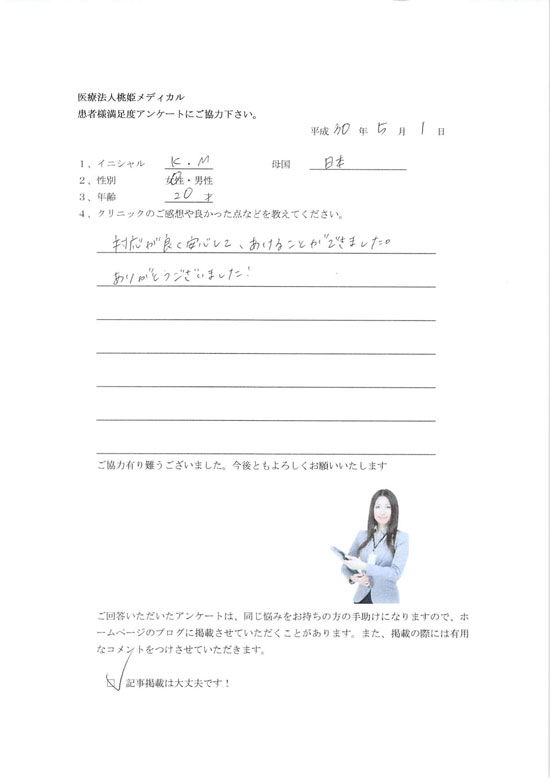 医療法人桃姫メディカル
患者様満足度アンケートにご協力下さい。
平成 30 年 5 月 1 日
1、イニシャル K・M 母国 日本
2、性別 女性・男性
3、年齢 20 才
4、クリニックのご感想や良かった点などを教えてください。
対応が良く安心して、あけることができました。
ありがとうございました!
ご協力有り難うございました。今後ともよろしくお願いいたします
ご回答いただいたアンケートは、同じ悩みをお持ちの方の手助けになりますので、ホ
ームページのブログに掲載させていただくことがあります。また、掲載の際には有用
なコメントをつけさせていただきます。
記事掲載は大丈夫です！